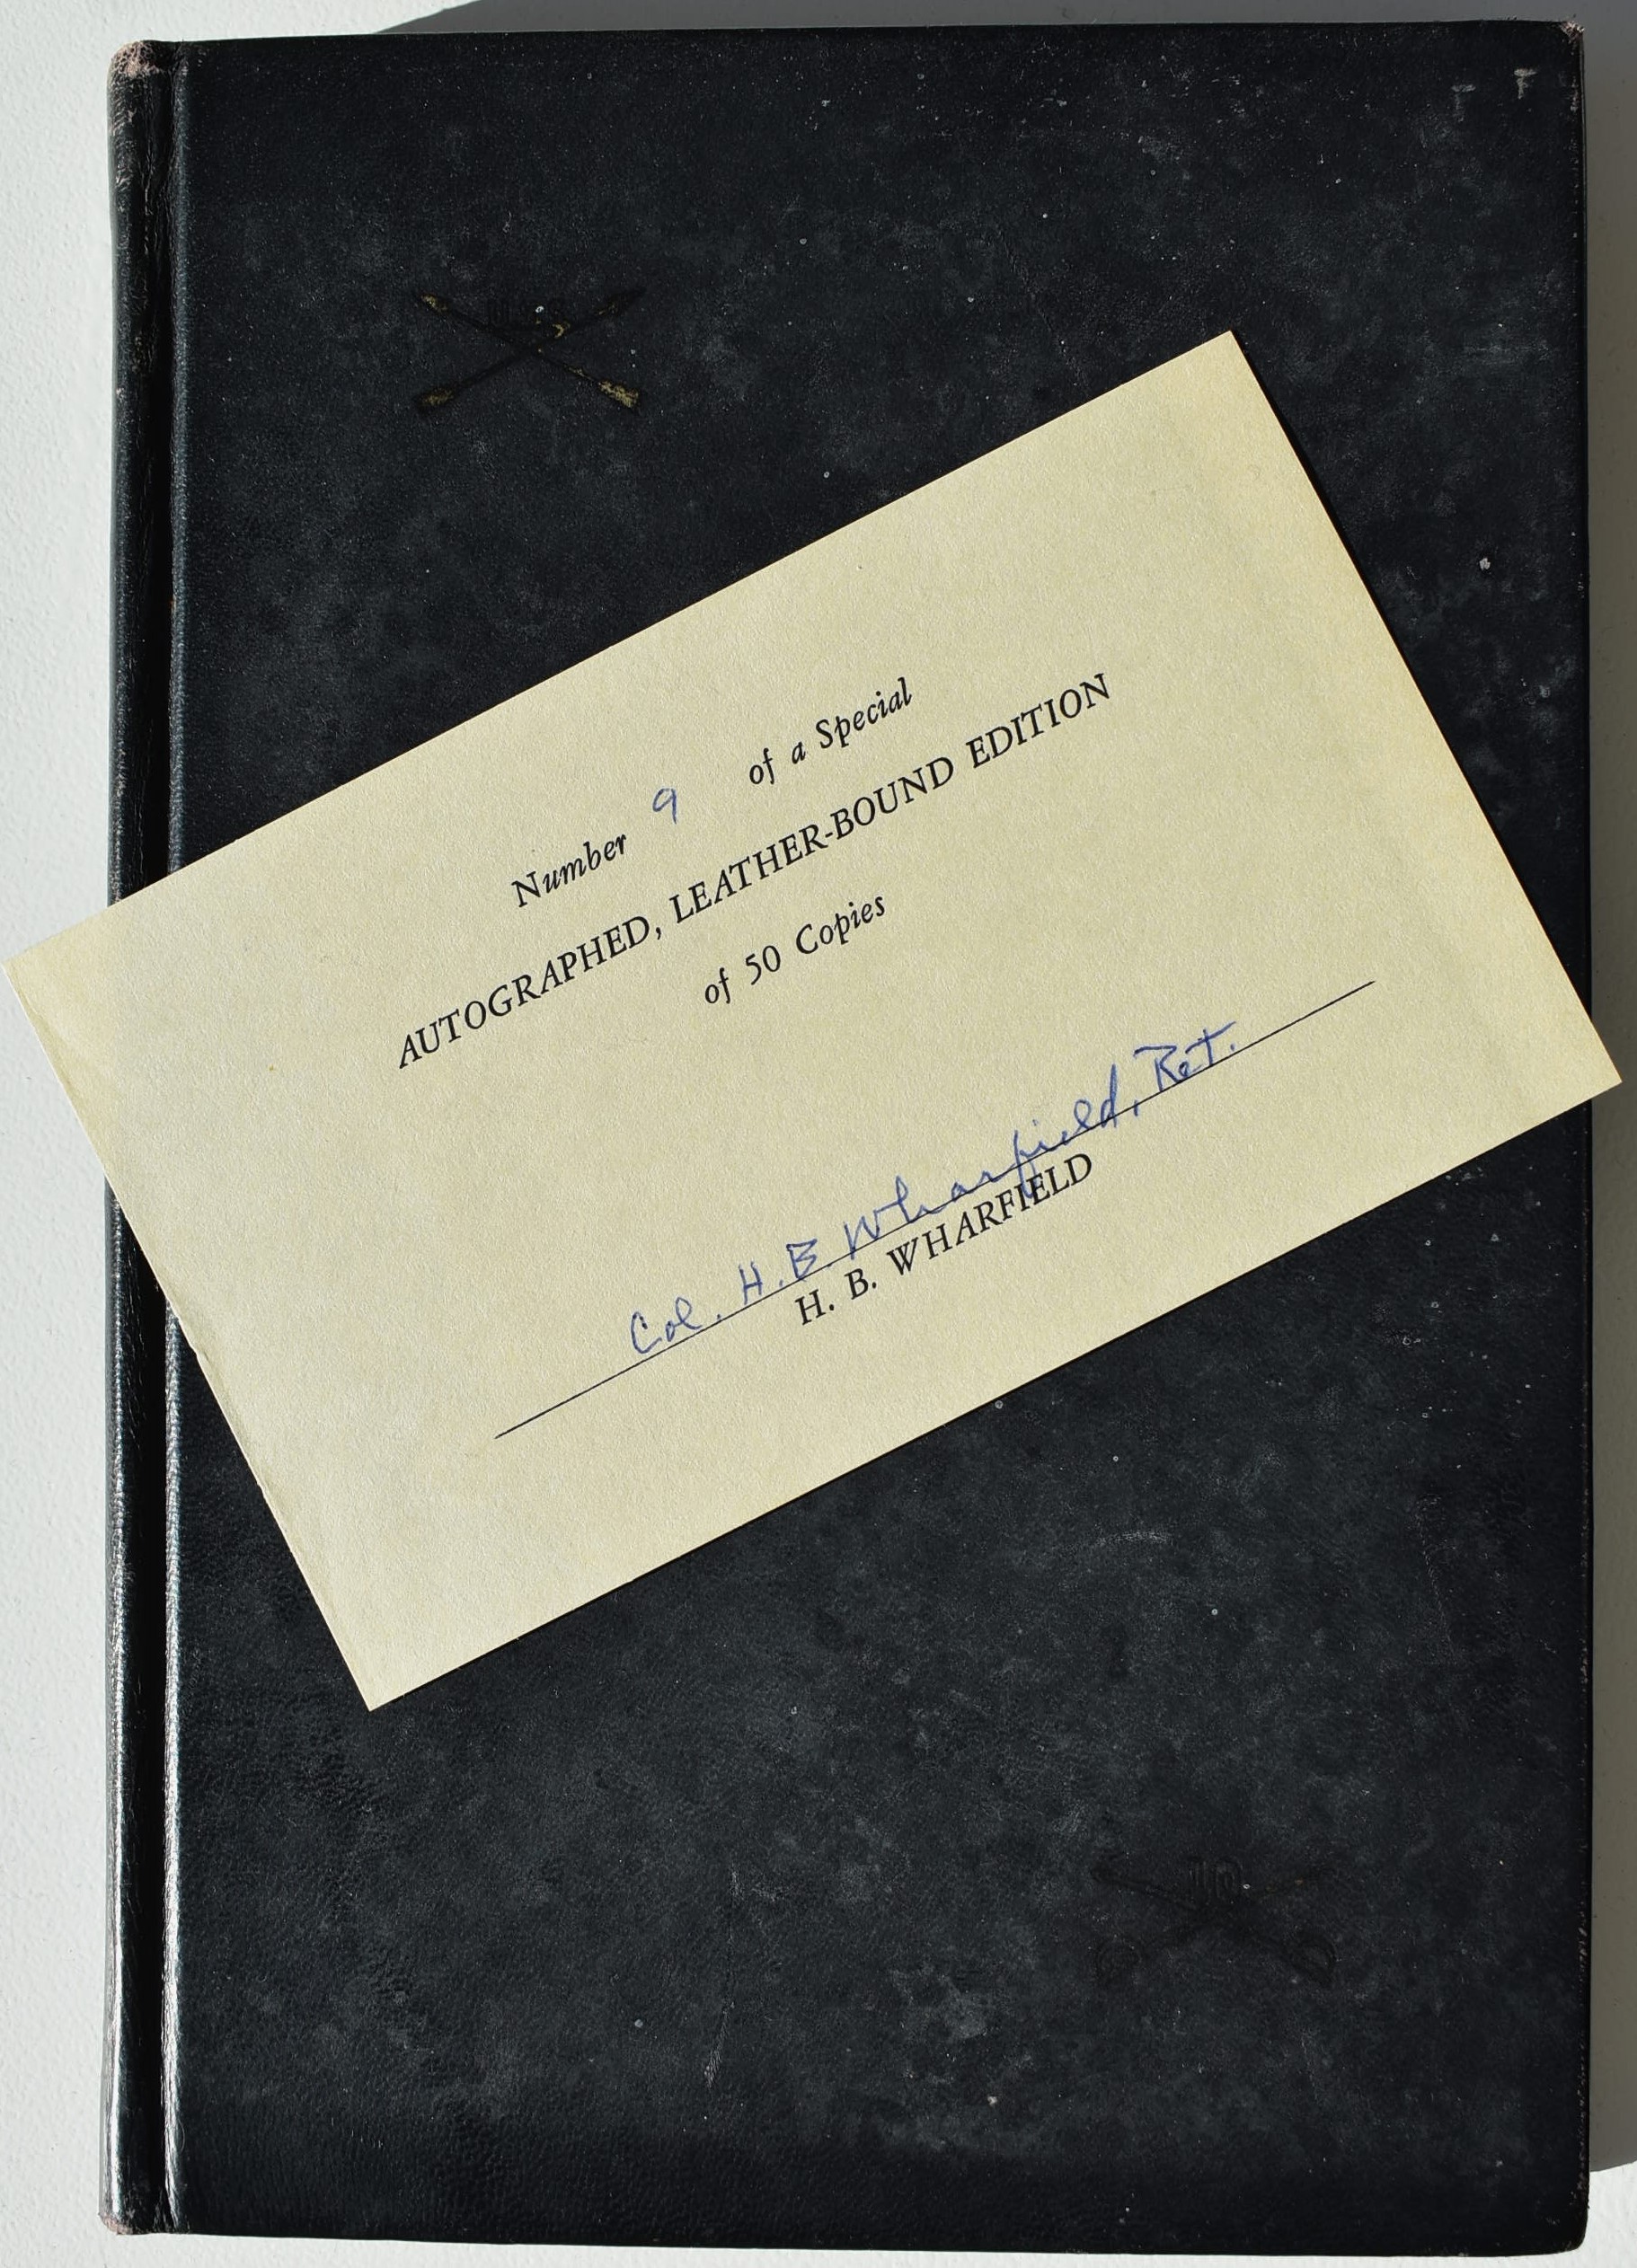 Number 9 of a Special
AUTOGRAPHED, LEATHER-BOUND EDITION
of 50 Copies
Col. H. B. Wharfield, Ret.
H. B. WHARFIELD
10